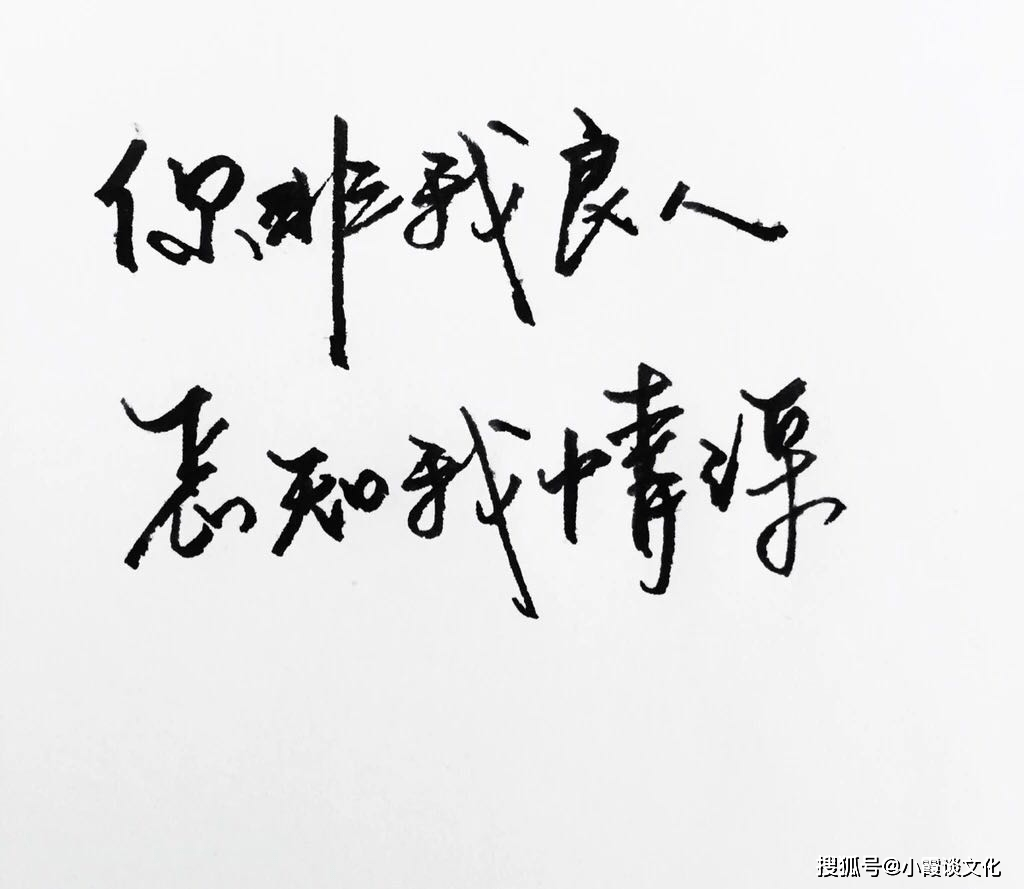 你非我良人
怎知我情深
搜狐号@小霞谈文化